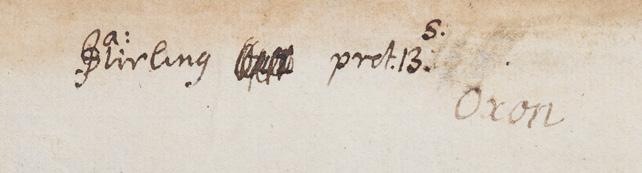 Ja: Stirling pret. 13s.
Oxon